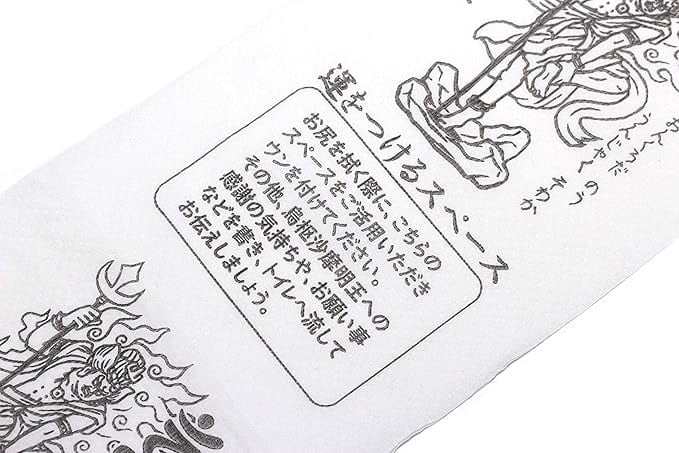 運をつけるスペース
お尻を拭く際に、こちらの
スペースをご活用いただき
ウンを付けてください。
その他、烏枢沙摩明王への
感謝の気持ちや、お願い事
などを書き、トイレへ流して
お伝えしましょう。
おんくろだ
のう
うんじゃく
そわか